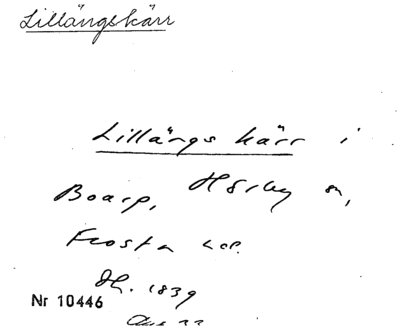 Lillängskärr
Lillängs kärr i
Boarp, Hörby sn,
Frosta hd.
Sk. 1839
Nr 10446